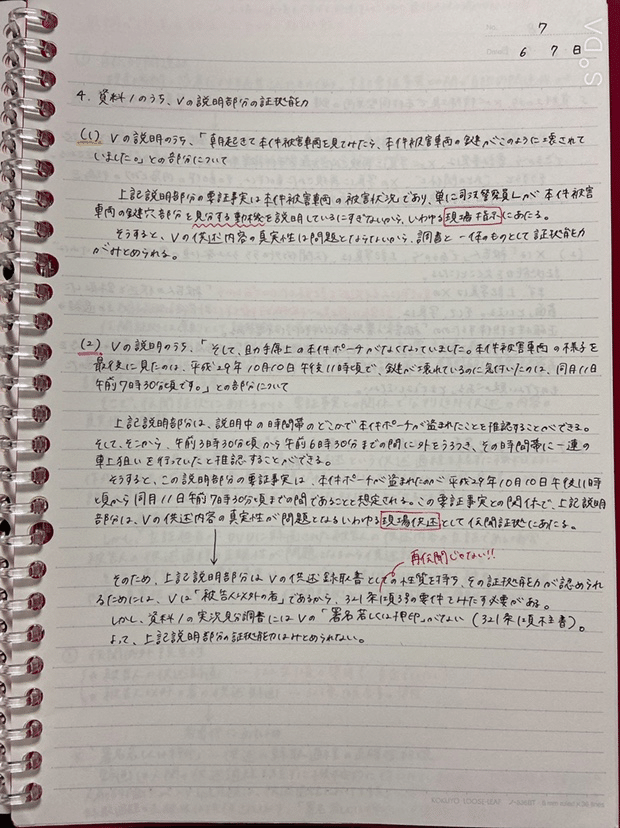 No. 7
Date 6 7 日
SODA
4. 資料1のうち、Vの説明部分の証拠能力
(1) Vの説明のうち、「朝起きて本件被害車両を見てみたら、本件被害車両の鍵がこのように壊されて
いました。」との部分について
上記説明部分の要証事実は本件被害車両の被害状況」であり、単に司法警察員Lが本件被害
車両の鍵穴部分を見分する動機を説明しているにすぎないから、いわゆる現場指示にあたる。
そうすると、Vの供述内容の真実性は問題とならないから、調書と一体のものとして証拠能力
がみとめられる。
(2) Vの説明のうち、「そして、助手席上の本件ポーチがなくなっていました。本件被害車両の様子を
最後に見たのは、平成29年10月10日午後11時頃で、鍵が壊れているのに気付いたのは、同月11日
午前7時30分頃です。」との部分について
上記説明部分は、説明中の時間帯のどこかで本件ポーチが盗まれたことを推認することができる。
そして、そこから、午前3時30分頃から午前6時30分までの間に外をうろつき、その時間帯に一連の
車上狙いを行っていたと推認することができる。
そうすると、この説明部分の要証事実は、本件ポーチが盗まれたのが平成29年10月10日午後11時
頃から同月11日午前7時30分頃までの間であることと想定される。この要証事実との関係で、上記説明
部分は、Vの供述内容の真実性が問題となるいわゆる現場供述として伝聞証拠にあたる。
再伝聞じゃない!!
そのため、上記説明部分はVの供述録取書としての性質を持ち、その証拠能力が認められ
るためには、Vは「被告人以外の者」であるから、321条1項3号の要件をみたす必要がある。
しかし、資料1の実況見分調書にはVの「署名若しくは押印」がない(321条1項柱書)。
よって、上記説明部分の証拠能力はみとめられない。